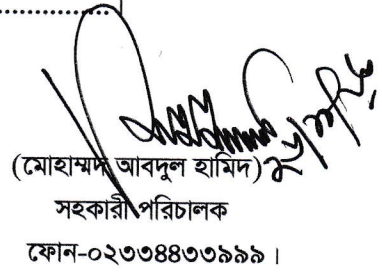 (মোহাম্মদ আবদুল হামিদ)
সহকারী পরিচালক
ফোন-০২৩৩৪৪৩৩৯৯৯।